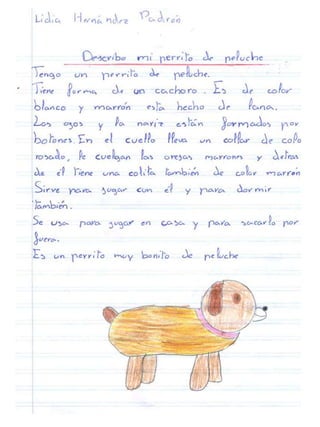 Lidia Hernández Padrón
Describo mi perrito de peluche
Tengo un perrito de peluche.
Tiene forma de un cachoro. Es de color
blanco y marrón esta hecho de lana.
Los ojos y la nariz están formados por
botones En el cuello lleva un collar de colo
rosado, le cuelgan las orejas marrons y detras
de él tiene una colita también de color marrón
Sirve para jugar con él y para dormir
también.
Se usa para jugar en casa y para sacarlo por
fuera.
Es un perrito muy bonito de peluche